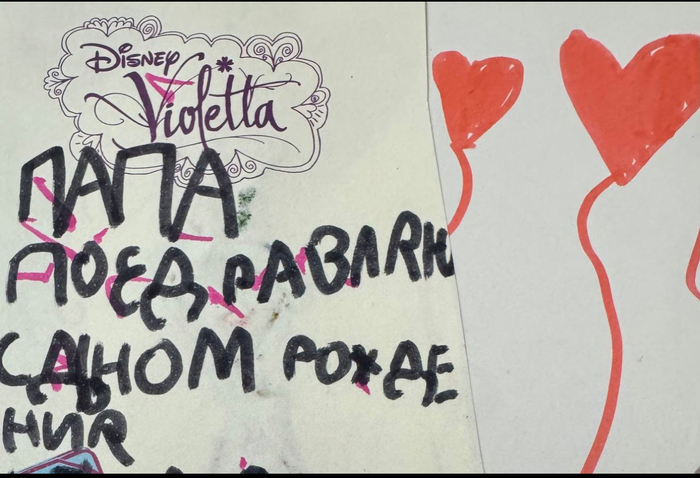 Disney
Violetta
ПАПА
ПОЕДРАВЛЯЮ
СДНОМ РОЖДЕ
НИЯ